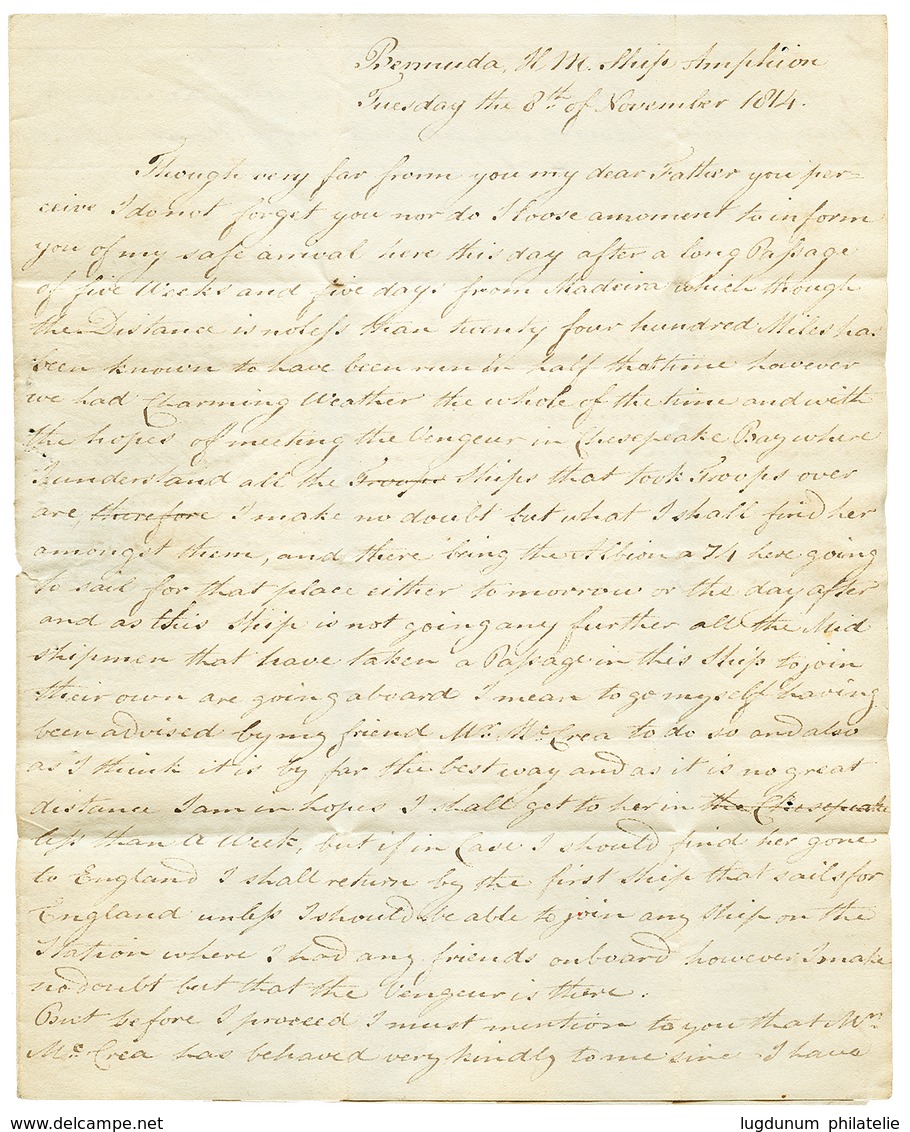 Bermuda, H M. Ship Amphion
Tuesday the 8th of November 1814.
Though very far from you my dear Father you per=
ceive I do not forget you nor do I loose a moment to inform
you of my safe arrival here this day after a long Passage
of five Weeks and five days from Madeira which though
the Distance is no less than twenty four hundred Miles has
been known to have been run in half that time however
we had Charming Weather the whole of the time and with
the hopes of meeting the Vengeur in Chesepeake Bay where
I understand all the Troops Ships that took Troops over
are, therefore I make no doubt but what I shall find her
amongst them, and there being the Albion a 74 here going
to sail for that place either tomorrow or the day after
and as this Ship is not going any further all the Mid
shipmen that have taken a Passage in this Ship to join
their own are going aboard I mean to go myself having
been advised by my friend Mr. McCrea to do so and also
as I think it is by far the best way and as it is no great
distance I am in hopes I shall get to her in the Chesepeake
less than a Week, but if in Case I should find her gone
to England I shall return by the first ship that sails for
England unless I should be able to join any Ship on the
Station where I had any friends onboard however I make
no doubt but that the Vengeur is there.
But before I proceed I must mention to you that Mr.
McCrea has behaved very kindly to me sinc I have
www.delcampe.net
lugdunum philatelie